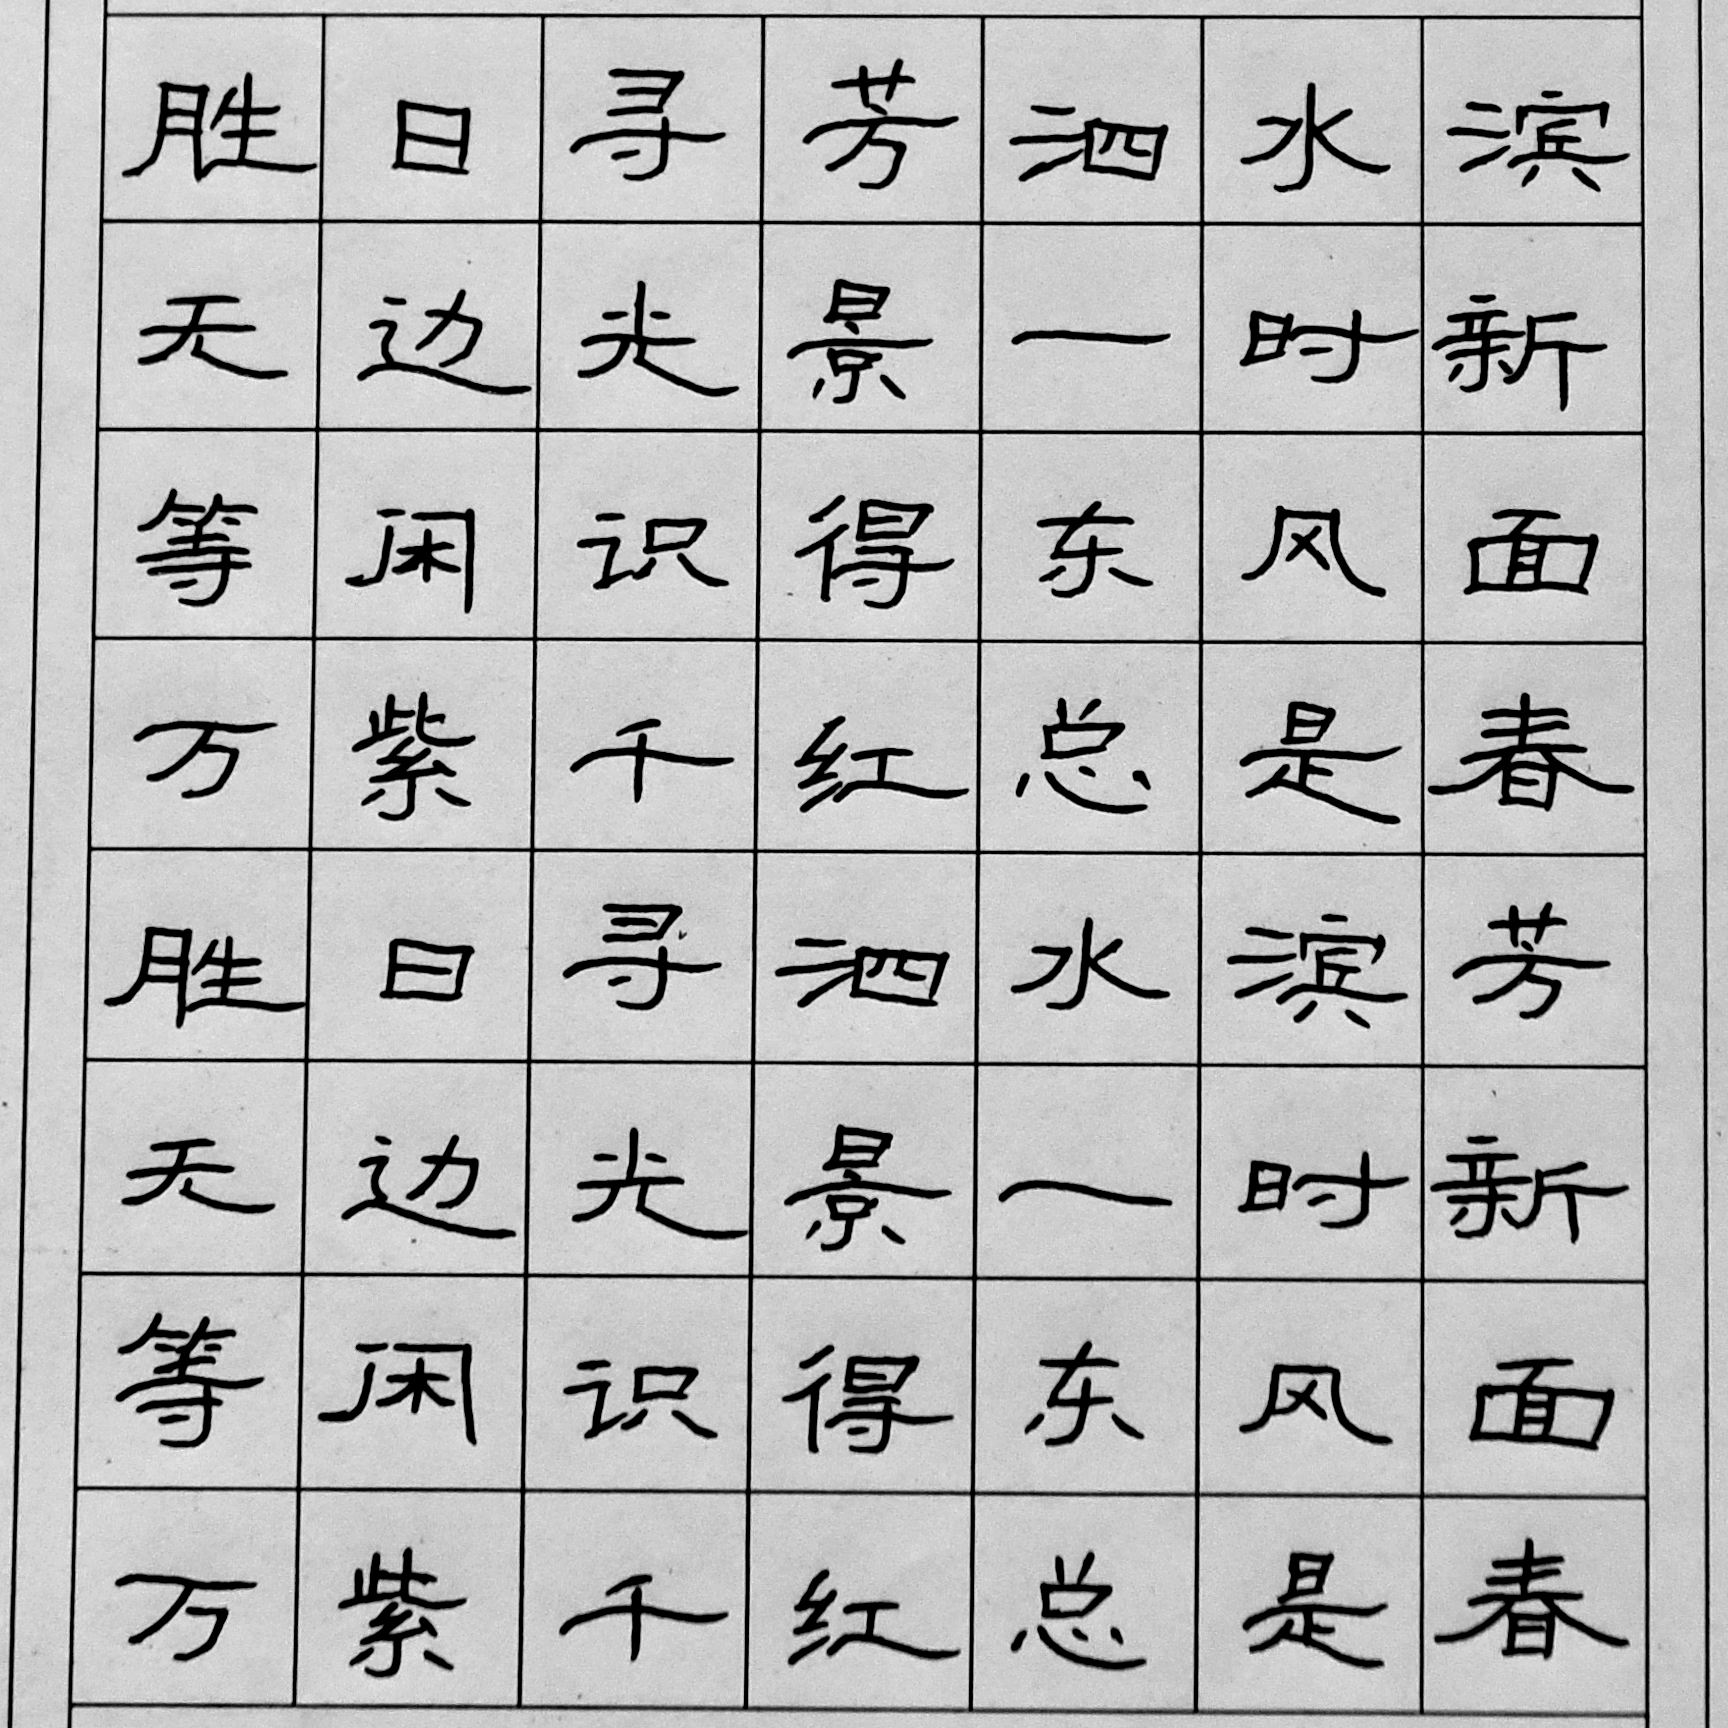 胜日寻芳泗水滨
无边光景一时新
等闲识得东风面
万紫千红总是春
胜日寻泗水滨芳
无边光景一时新
等闲识得东风面
万紫千红总是春